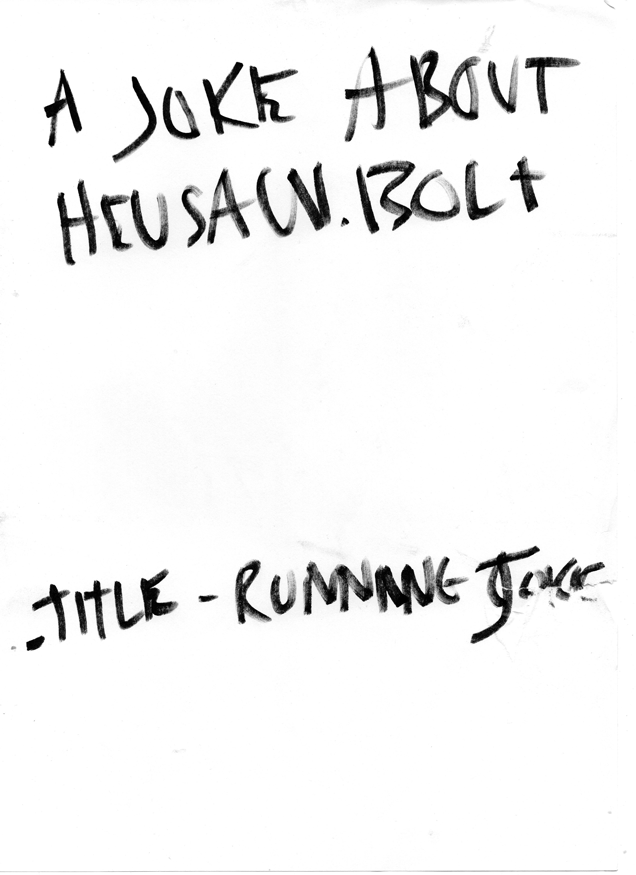 A JOKE ABOUT
HEUSAIN.BOLT
TITLE - RUNNING JOKE